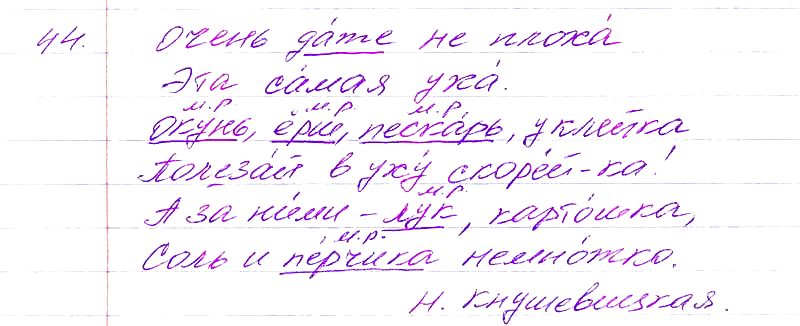 44. Очень да́же не плоха́
Эта са́мая уха́.
м.р м.р. м.р
Оку́нь, ёрш, песка́рь, уклейка
Полеза́й в уху́ скоре́й-ка!
м.р.
А за́ ни́ми – лук, карто́шка,
м.р.
Соль и пе́рчика немно́жко.
Н. Кнушевицкая.